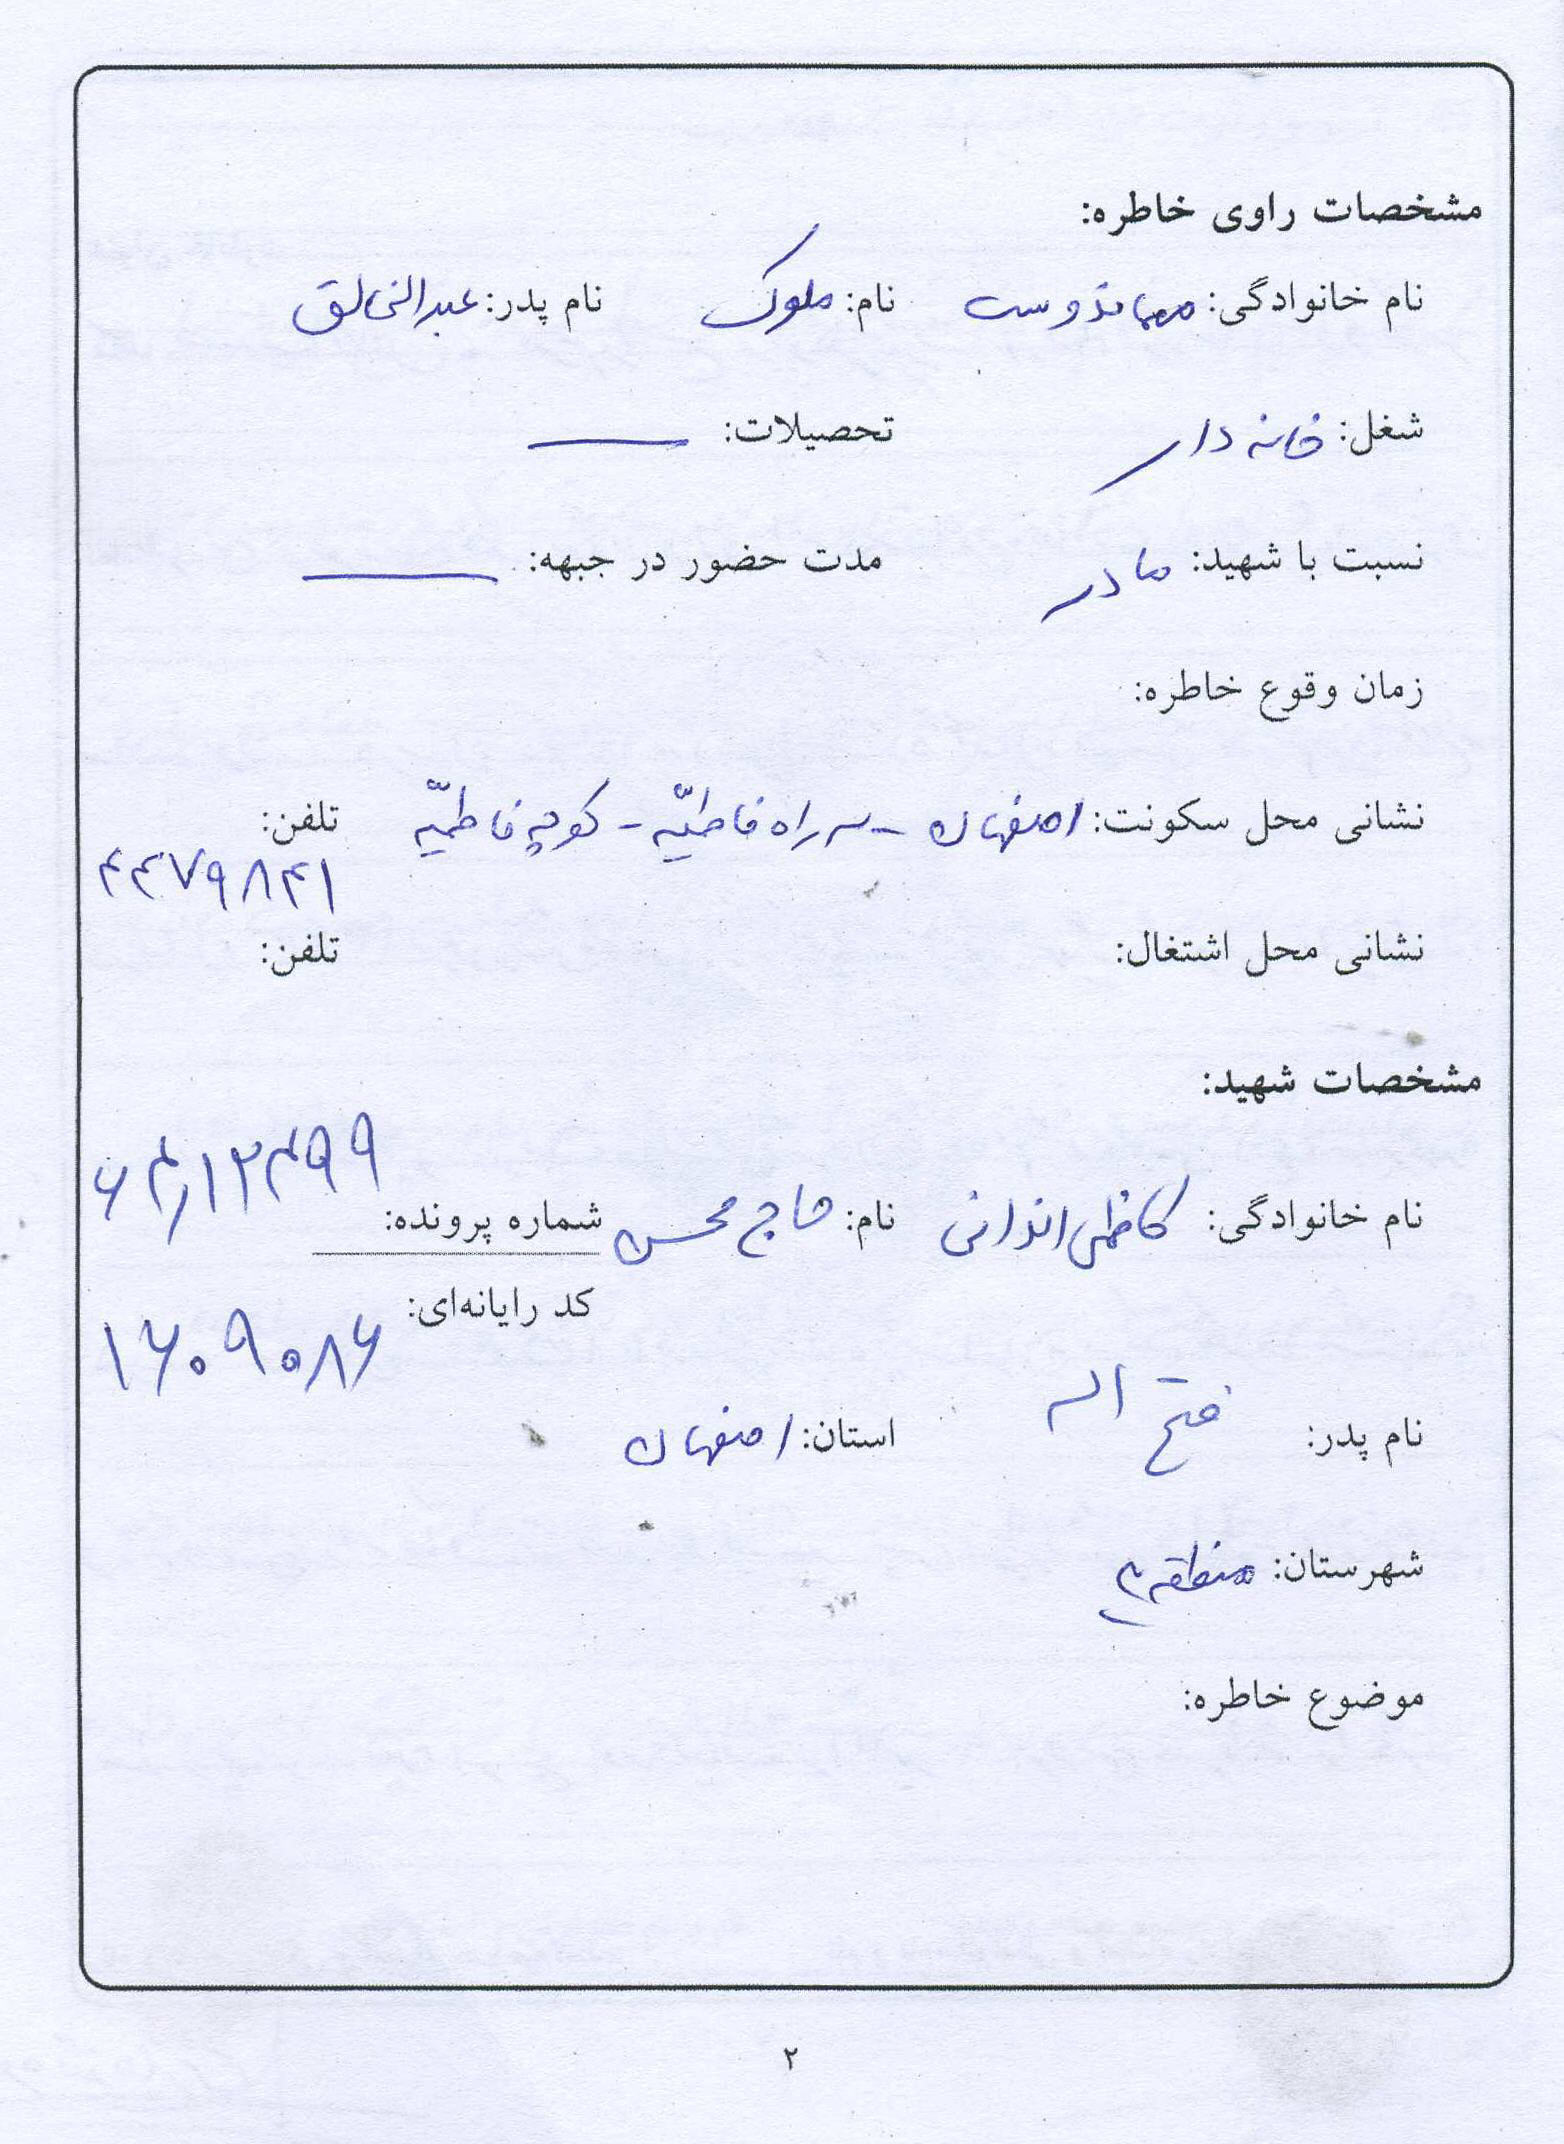 مشخصات راوی خاطره:
نام خانوادگی: مهماندوست نام: ملوک نام پدر: عبدالخالق
شغل: خانه دار تحصیلات: ــــ
نسبت با شهید: مادر مدت حضور در جبهه: ــــ
زمان وقوع خاطره:
نشانی محل سکونت: اصفهان - سه راه فاطمیّه - کوچه فاطمیّه تلفن:
۴۴۷۹۸۴۱
نشانی محل اشتغال: تلفن:
مشخصات شهید:
نام خانوادگی: کاظمی اندانی نام: حاج محسن شماره پرونده:
کد رایانه‌ای:
۱۶۰۹۰۸۶
نام پدر: فتح اله استان: اصفهان
شهرستان: منطقه
موضوع خاطره:
۲